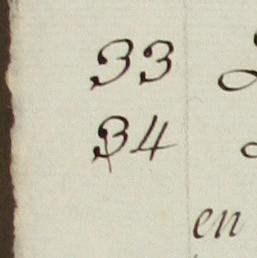 33
34
en